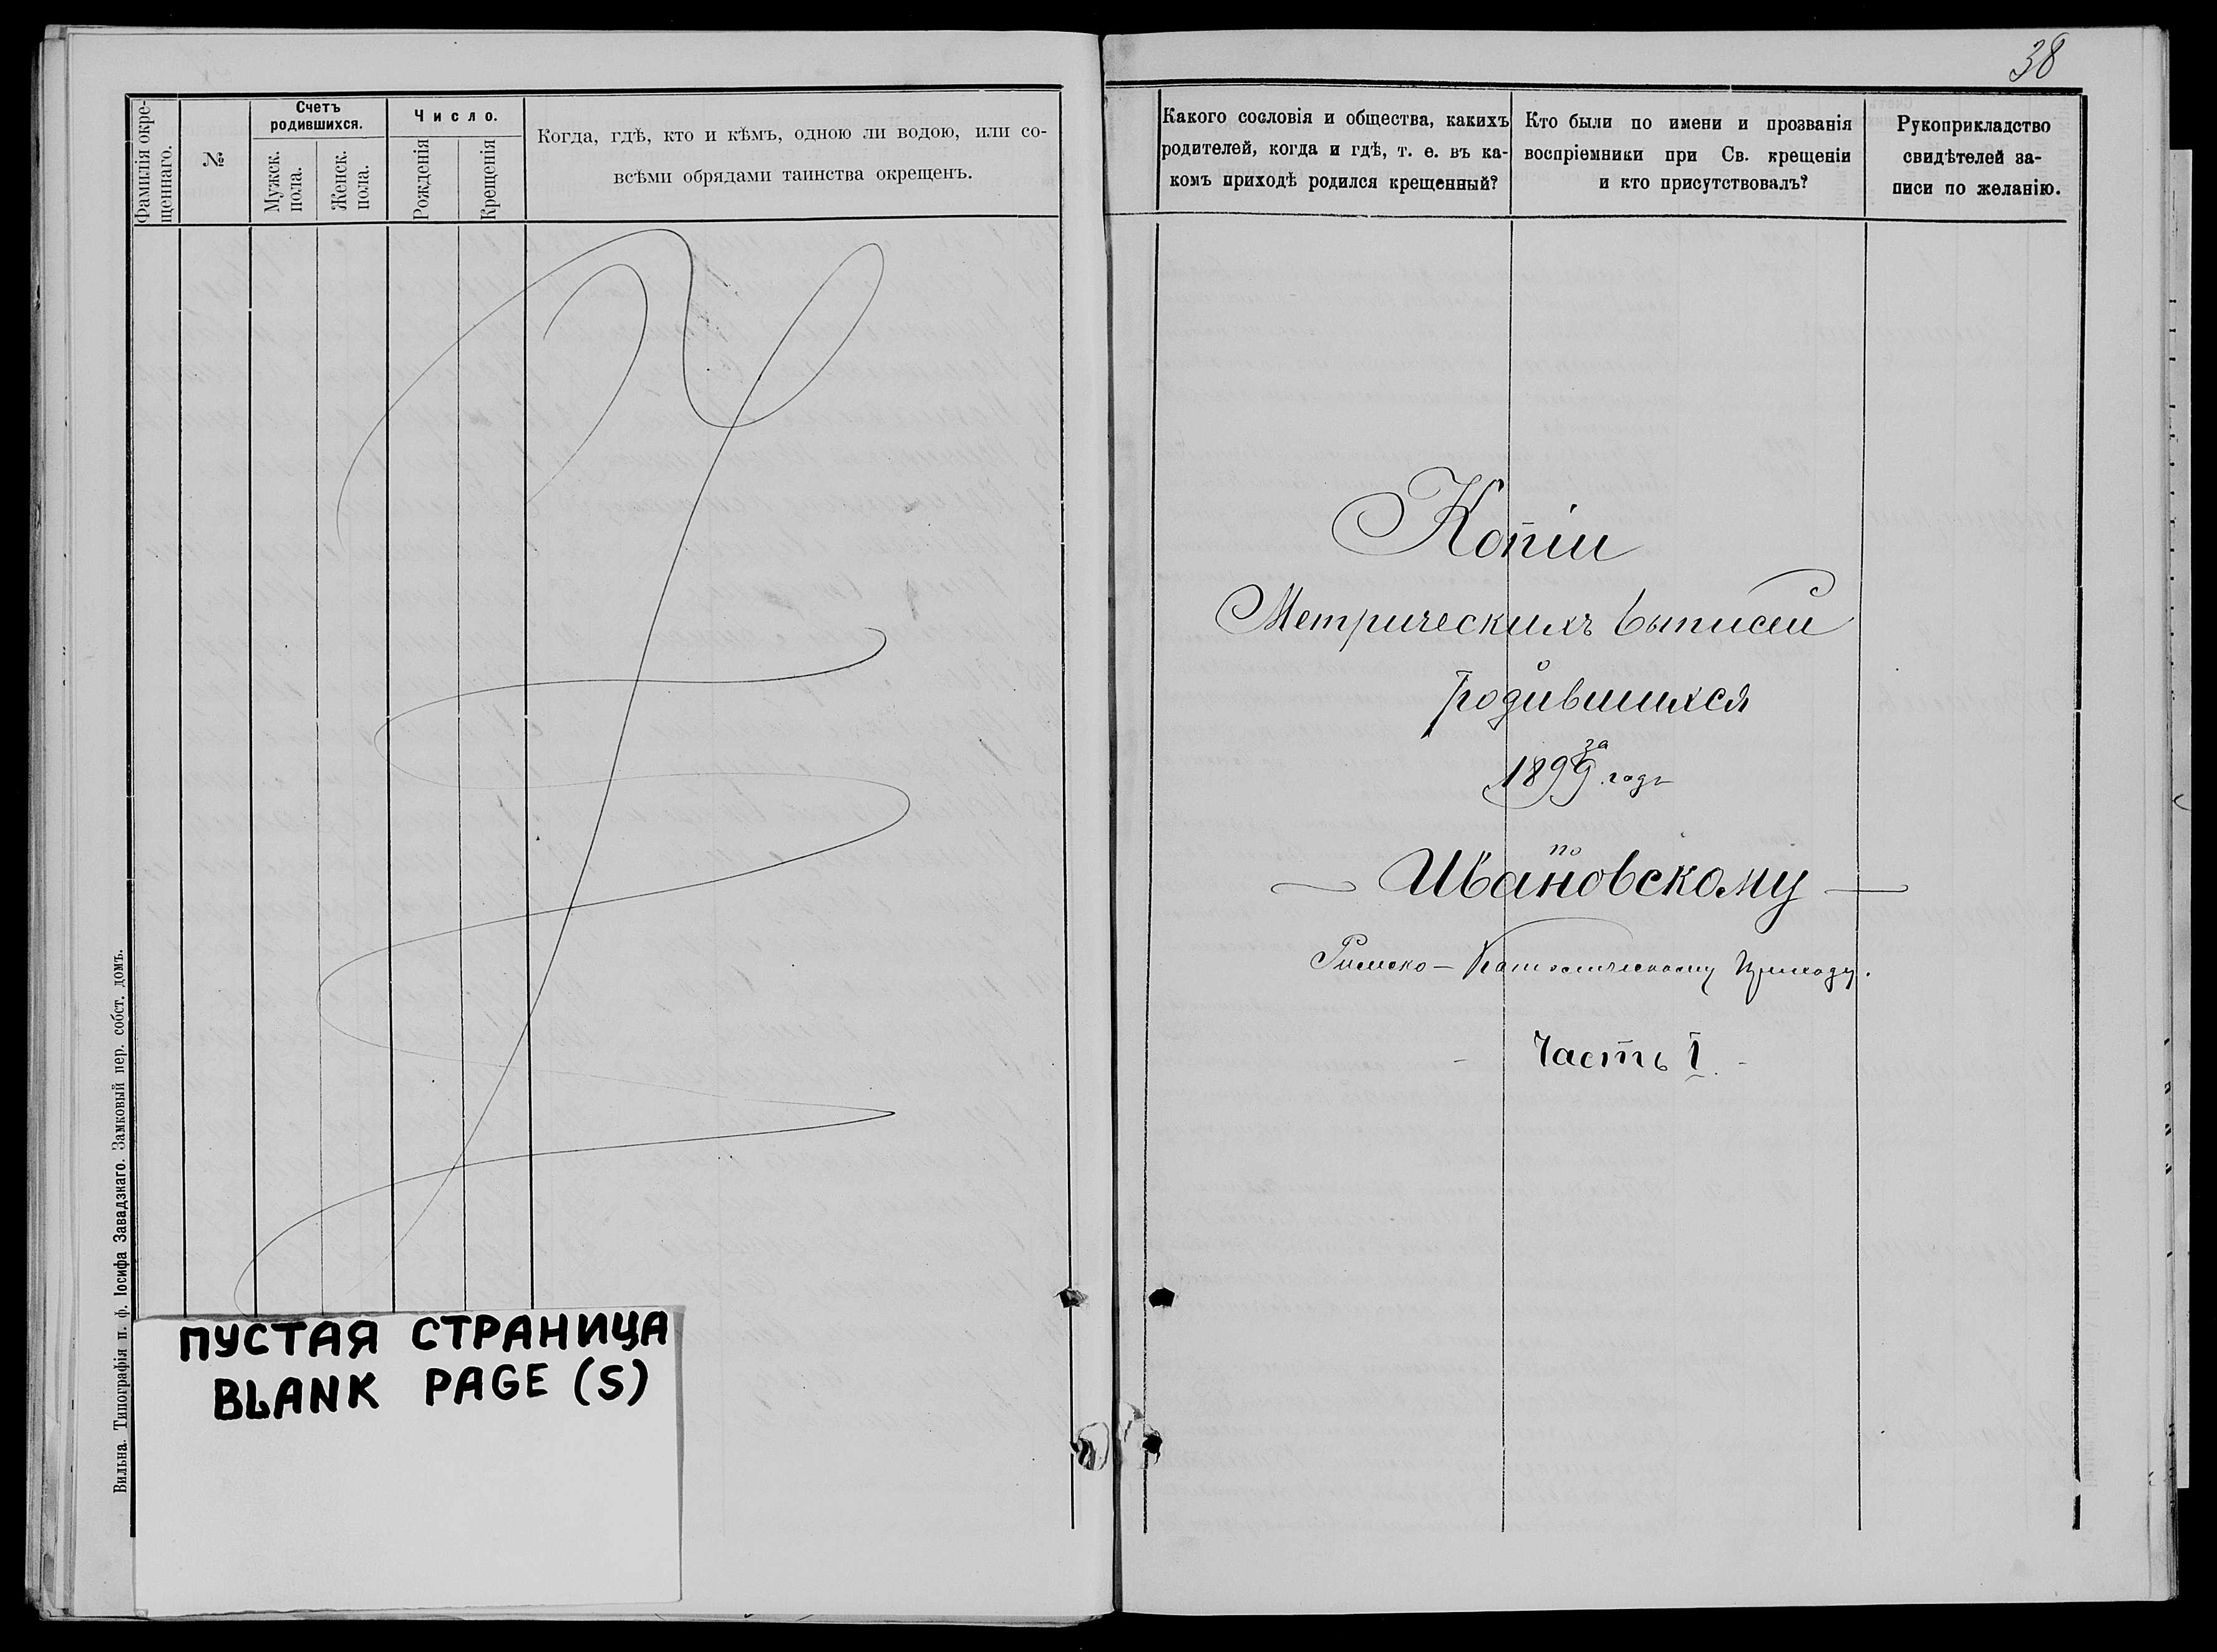 Фамилія окре-
щеннаго.
№
Счетъ
родившихся.
Мужск.
пола.
Женск.
пола.
Число.
Рожденія
Крещенія
Когда, гдѣ, кто и кѣмъ, одною ли водою, или со-
всѣми обрядами таинства окрещенъ.
Вильна. Типографія п. ф. Іосифа Завадзкаго. Замковый пер. собст. домъ.
ПУСТАЯ СТРАНИЦА
BLANK PAGE (S)
38
Какого сословія и общества, какихъ
родителей, когда и гдѣ, т. е. въ ка-
комъ приходѣ родился крещенный?
Кто были по имени и прозванія
воспріемники при Св. крещеніи
и кто присутствовалъ?
Рукоприкладство
свидѣтелей за-
писи по желанію.
Копіи
Метрическихъ выписей
о
родившихся
за
1899 годъ
по
Ивановскому
Римско-Католическому Приходу.
Часть I.